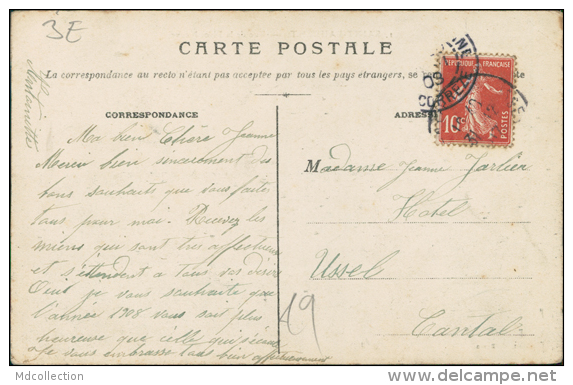 3E
CARTE POSTALE
La correspondance au recto n'étant pas acceptée par tous les pays étrangers, se
CORRESPONDANCE
ADRES
RÉPUBLIQUE FRANÇAISE
10
POSTES
09
CORREZE
Ma bien Chère Jeanne
Merci bien sincèrement des
bons souhaits que vous faites
tous pour moi. Recevez les
miens qui sont très affectueux
et s'étendent à tous vos désirs
je vous souhaite que
l'année 1908 vous soit plus
heureuse que celle qui
Je vous embrasse tous bien affectueusement
Madame Jeanne Jarlier
Hotel
Ussel
Cantal
19
Mdcollection